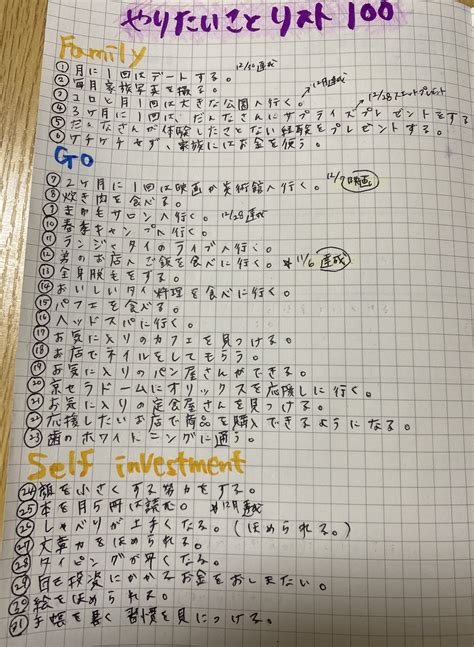 やりたいこと リスト 100
Family
① 月に1回はデートする。 12/31達成
② 毎月家族写真を撮る。
③ コロと月1回は大きな公園へ行く。 12月達成
④ 3ヶ月に1回は、だんなさんにサプライズプレゼントをする 12/28 スエットプレゼント
⑤ だんなさんが体験したことない経験をプレゼントする。
⑥ ケチケチせず、家族にはお金を使う。
Go
⑦ 2ヶ月に1回は映画か美術館へ行く。 12/7 映画
⑧ 炊き肉を食べる。
⑨ まかもサロンへ行く。 12/28達成
⑩ 春季キャンプへ行く。
⑪ ランジャタイのライブへ行く。
⑫ 男のお店へご飯を食べに行く。 * 11/6 達成
⑬ 全身脱毛をする。
⑭ おいしいタイ料理を食べに行く。
⑮ パフェを食べる。
⑯ ヘッドスパに行く。
⑰ お気に入りのカフェを見つける。
⑱ お店でネイルをしてもらう。
⑲ お気に入りのパン屋さんができる。
⑳ 京セラドームにオリックスを応援しに行く。
㉑ お気に入りの定食屋さんを見つける。
㉒ 応援したいお店で商品を購入できるようになる。
㉓ 歯のホワイトニングに通う。
Self investment
㉔ 顔を小さくする努力をする。
㉕ 本を月5冊は読む。 *12月達成
㉖ しゃべりが上手くなる。(ほめられる。)
㉗ 文章力をほめられる。
㉘ タイピングが早くなる。
㉙ 自己投資にかかるお金をおしまない。
㉚ 絵をほめられる。
㉛ 手帳を書く習慣を身につける。